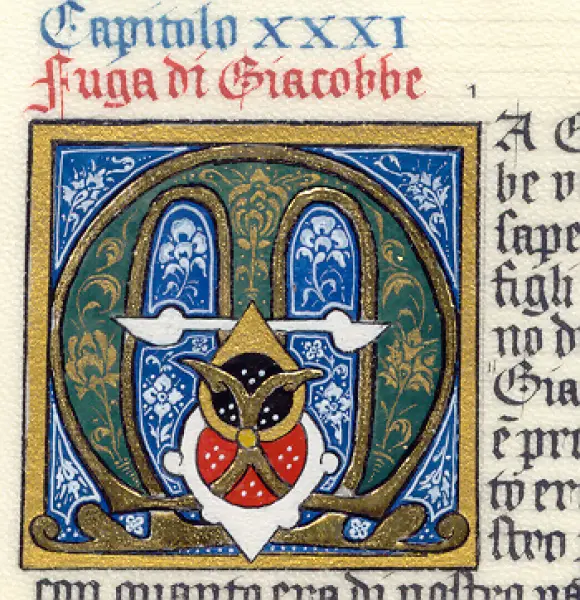 Capitolo XXXI
Fuga di Giacobbe
1
MA G
be v
sape
figli
no d
"Gia
è pro
to er
stro
con quanto era di nostro pa